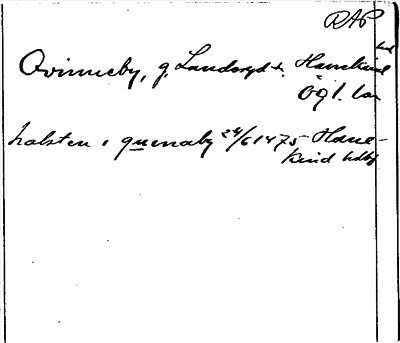 RAP
Qvinneby, g. Landeryd s. Hanekind hd
Ögl. län
halsten i quenaby 24/6 1475 Hane-
kind hdbf